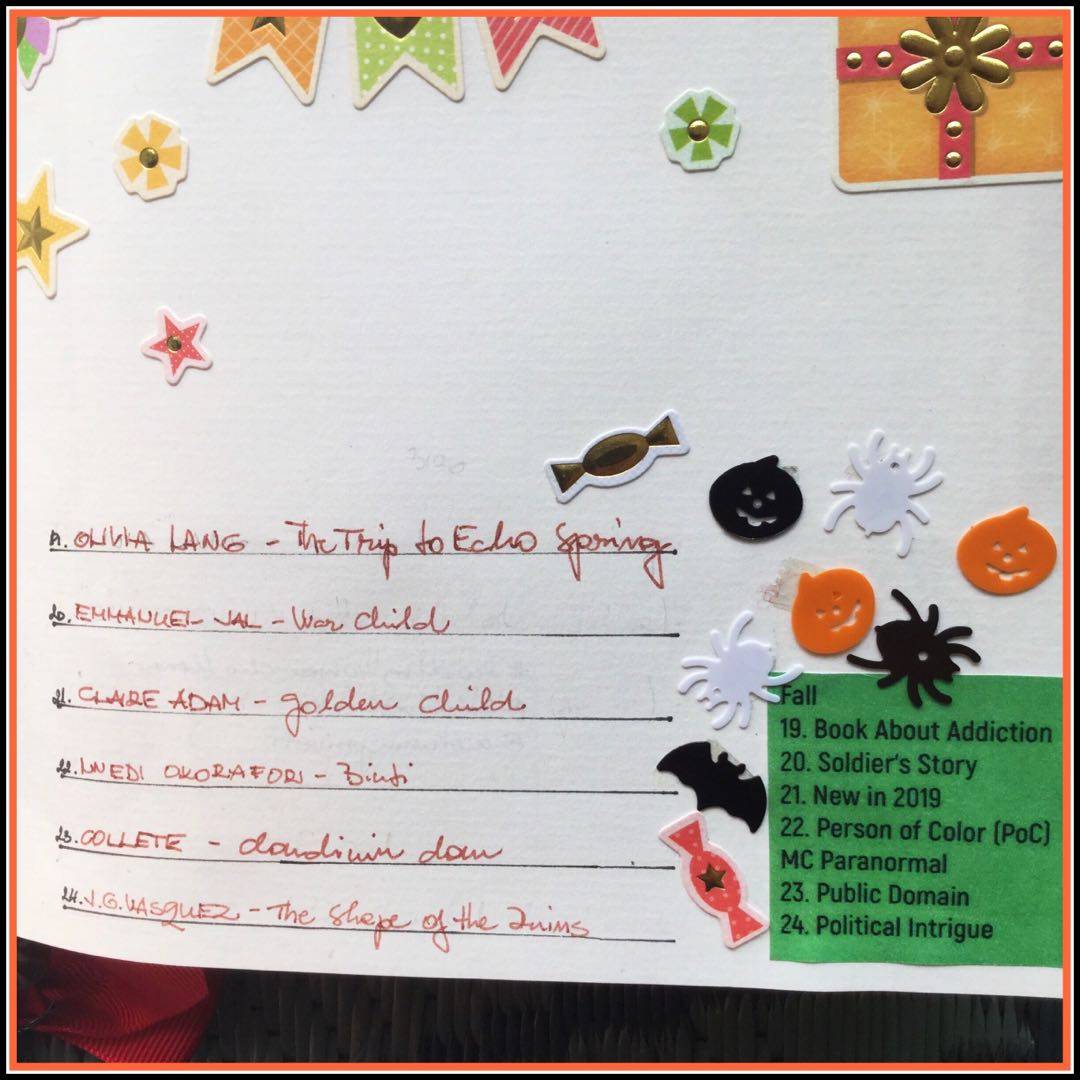 19. OLIVIA LANG - The Trip to Echo Spring
20. EMMANUEL JAL - War Child
21. CLAIRE ADAM - golden child
22. NNEDI OKORAFOR - Binti
23. COLLETE -
24. J.G. VASQUEZ - The Shape of the Ruins
Fall
19. Book About Addiction
20. Soldier's Story
21. New in 2019
22. Person of Color (PoC)
MC Paranormal
23. Public Domain
24. Political Intrigue